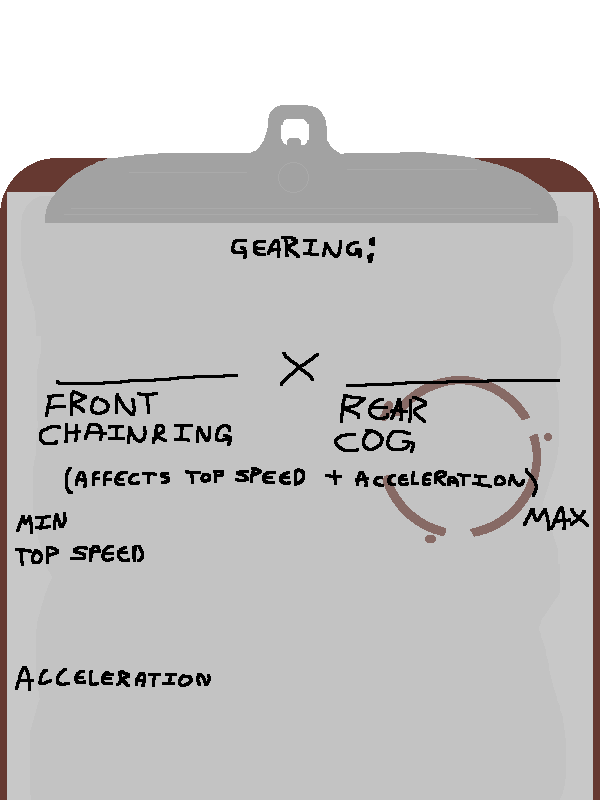 GEARING:
X
FRONT CHAINRING
REAR COG
(AFFECTS TOP SPEED + ACCELERATION)
MIN MAX
TOP SPEED
ACCELERATION